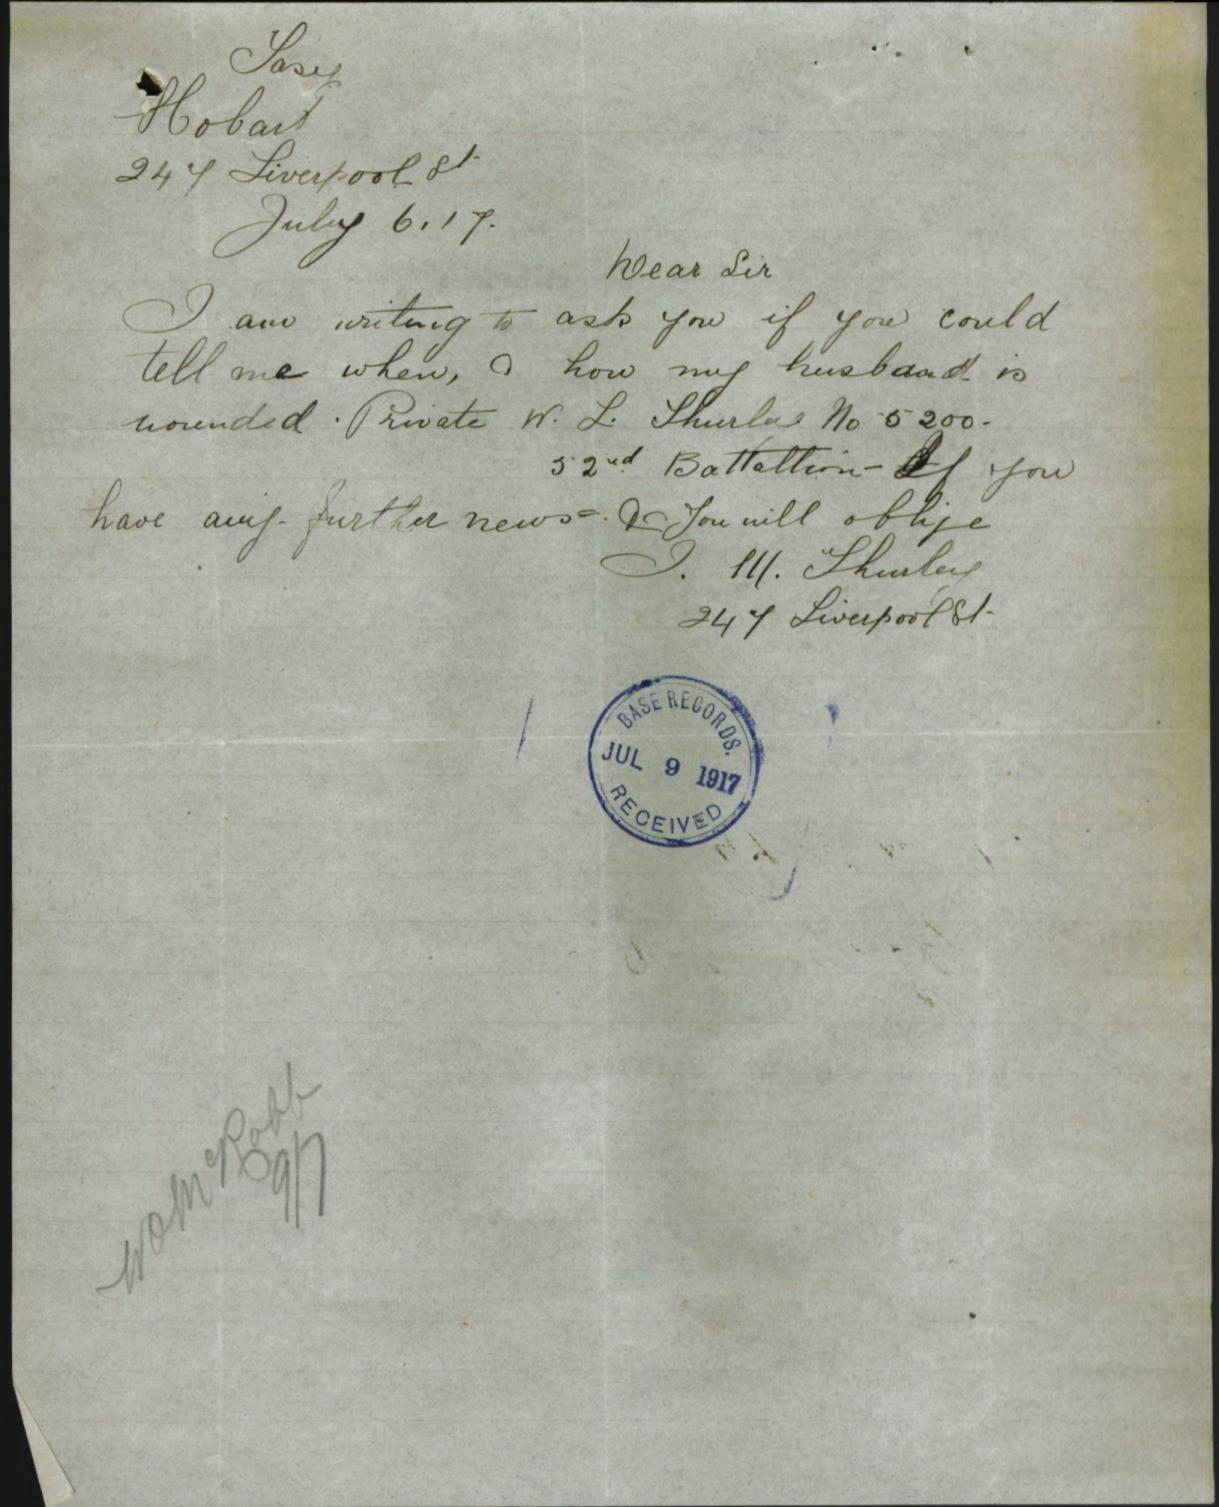 Tasy
Hobart
247 Liverpool St
July 6.17.
Dear Sir
I am writing to ask you if you could
tell me when, & how my husband is
wounded. Private W. L. Thurley No 5200-
52nd Battallion- If you
have any further news =. & You will oblige
I. M. Thurley
247 Liverpool St-
BASE RECORDS.
JUL 9 1917
RECEIVED
McRobb
9/7